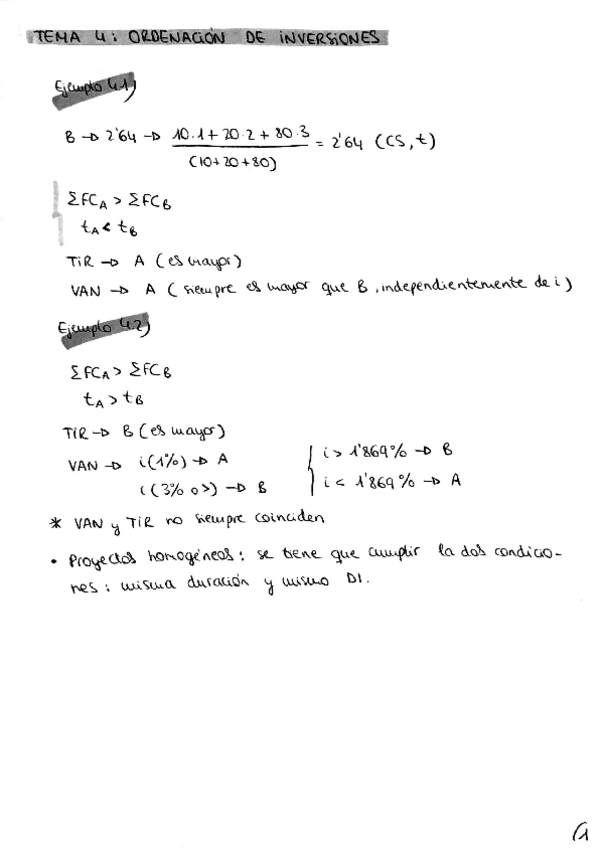 TEMA 4: ORDENACIÓN DE INVERSIONES
Ejemplo 4.1)
B → 2'64 → 10·1+20·2+80·3 / (10+20+80) = 2'64 (CS,t)
ΣFCA > ΣFCB
tA < tB
TIR → A (es mayor)
VAN → A (siempre es mayor que B, independientemente de i)
Ejemplo 4.2)
ΣFCA > ΣFCB
tA > tB
TIR → B (es mayor)
VAN → i(1%) → A
i(3% o >) → B
i > 1'869% → B
i < 1'869% → A
* VAN y TIR no siempre coinciden
• Proyectos homogéneos: se tiene que cumplir la dos condicio-
nes: misma duración y mismo DI.
(1